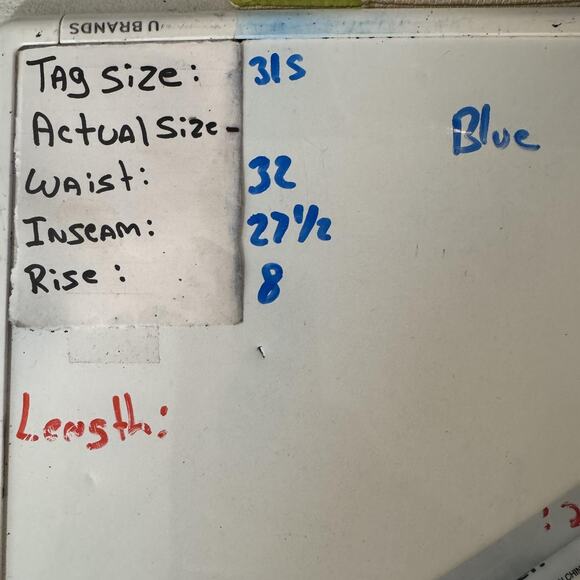 U BRANDS
TAg Size: 31S
ActuAl Size-
Blue
WAist: 32
InseAm: 27 1/2
Rise: 8
Length: